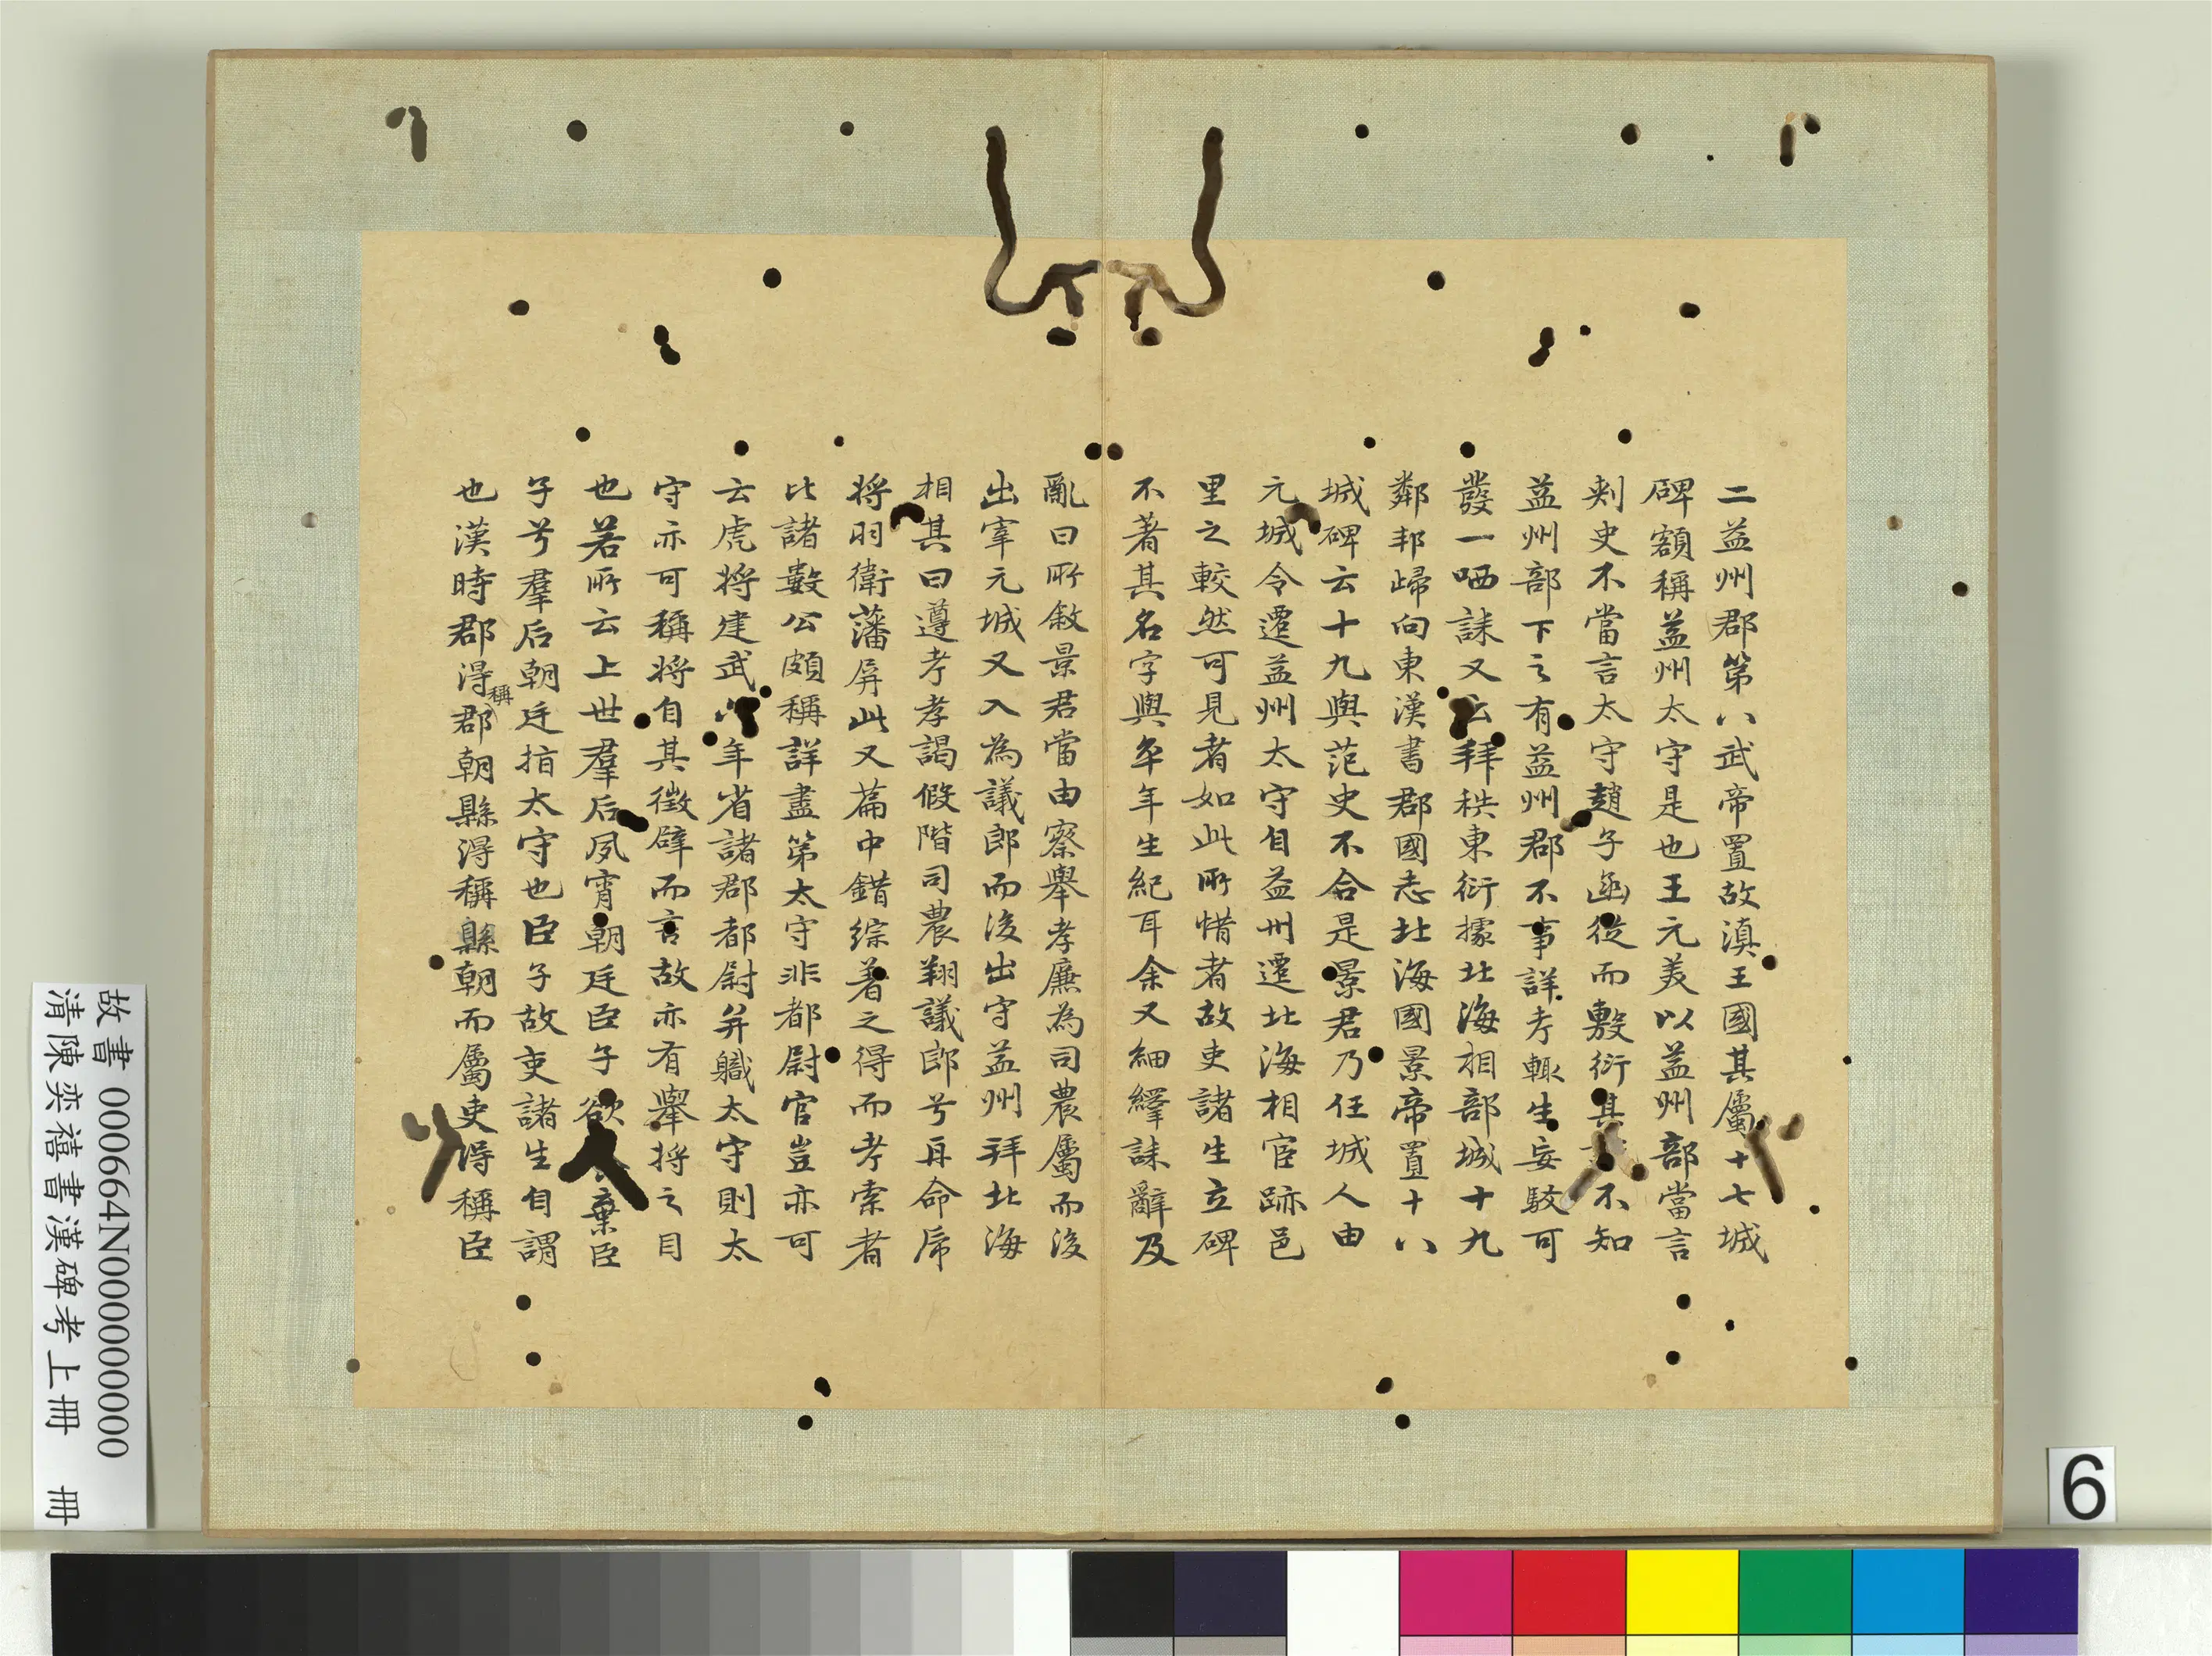 二益州郡第八武帝置故滇王國其屬十七城
碑額稱益州太守是也王元美以益州部當言
刺史不當言太守趙子函從而敷衍其不知
益州部下之有益州郡不事詳考輒生妄駮可
發一哂誄又云拜秩東衍據北海相部城十九
鄰邦歸向東漢書郡國志北海國景帝置十八
城碑云十九與范史不合是景君乃任城人由
元城令遷益州太守自益州遷北海相宦跡邑
里之較然可見者如此所惜者故吏諸生立碑
不著其名字與卒年生紀耳余又細繹誄辭及
亂曰所敘景君當由察舉孝廉為司農屬而後
出宰元城又入為議郎而後出守益州拜北海
相其曰遵考孝謁假階司農翔議郎兮再命虎
將羽衛藩屏此又篇中錯綜著之得而考索者
比諸數公頗稱詳盡第太守非都尉官豈亦可
云虎將建武六年省諸郡都尉并職太守則太
守亦可稱將自其徵辟而言故亦有舉將之目
也若所云上世羣后夙宵朝廷臣子欲棄臣
子兮羣后朝廷指太守也臣子故吏諸生自謂
也漢時郡得稱郡朝縣得稱縣朝而屬吏得稱臣
稱
故書 000664N000000000
清陳奕禧書漢碑考上冊 冊
6